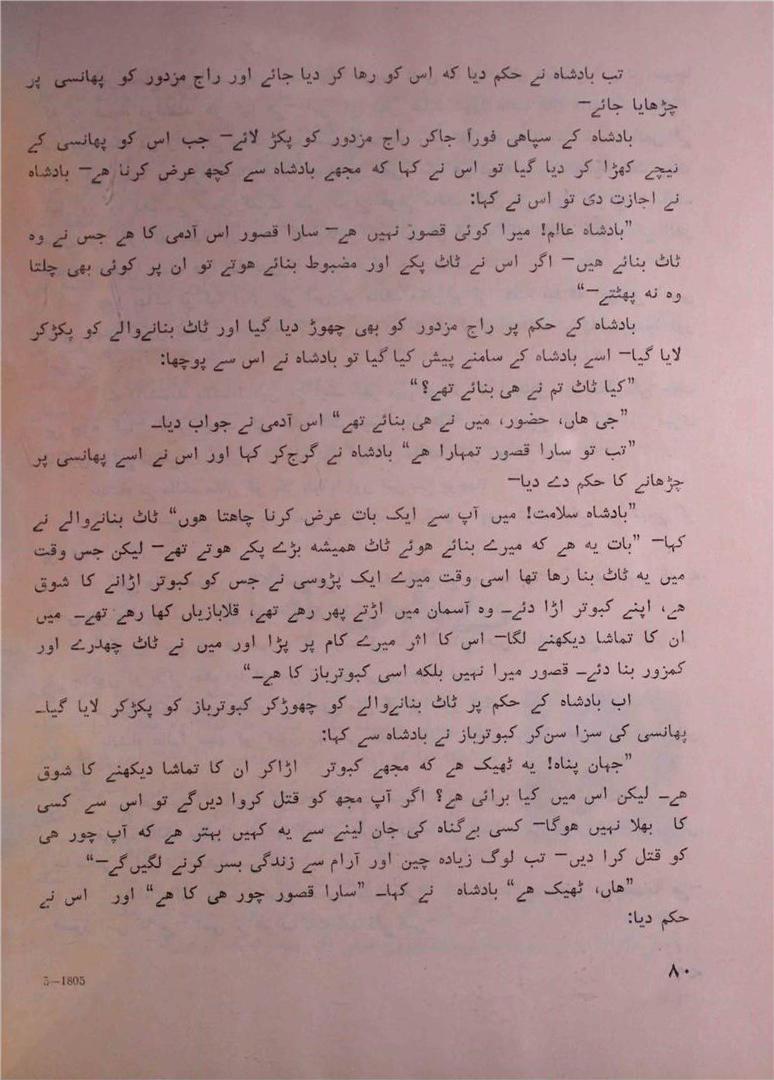 تب بادشاہ نے حکم دیا کہ اس کو رہا کر دیا جائے اور راج مزدور کو پھانسی پر
چڑھایا جائے—
بادشاہ کے سپاہی فوراً جاکر راج مزدور کو پکڑ لائے— جب اس کو پھانسی کے
نیچے کھڑا کر دیا گیا تو اس نے کہا کہ مجھے بادشاہ سے کچھ عرض کرنا ہے— بادشاہ
نے اجازت دی تو اس نے کہا:
”بادشاہ عالم! میرا کوئی قصور نہیں ہے— سارا قصور اس آدمی کا ہے جس نے وہ
ٹاٹ بنائے ہیں— اگر اس نے ٹاٹ پکے اور مضبوط بنائے ہوتے تو ان پر کوئی بھی چلتا
وہ نہ پھٹتے—“
بادشاہ کے حکم پر راج مزدور کو بھی چھوڑ دیا گیا اور ٹاٹ بنانےوالے کو پکڑکر
لایا گیا— اسے بادشاہ کے سامنے پیش کیا گیا تو بادشاہ نے اس سے پوچھا:
”کیا ٹاٹ تم نے ہی بنائے تھے؟“
”جی ہاں، حضور، میں نے ہی بنائے تھے“ اس آدمی نے جواب دیا۔
”تب تو سارا قصور تمہارا ہے“ بادشاہ نے گرج کر کہا اور اس نے اسے پھانسی پر
چڑھانے کا حکم دے دیا—
”بادشاہ سلامت! میں آپ سے ایک بات عرض کرنا چاہتا ہوں“ ٹاٹ بنانےوالے نے
کہا— ”بات یہ ہے کہ میرے بنائے ہوئے ٹاٹ ہمیشہ بڑے پکے ہوتے تھے— لیکن جس وقت
میں یہ ٹاٹ بنا رہا تھا اسی وقت میرے ایک پڑوسی نے جس کو کبوتر اڑانے کا شوق
ہے، اپنے کبوتر اڑا دئے۔ وہ آسمان میں اڑتے پھر رہے تھے، قلابازیاں کھا رہے تھے۔ میں
ان کا تماشا دیکھنے لگا— اس کا اثر میرے کام پر پڑا اور میں نے ٹاٹ چھدرے اور
کمزور بنا دئے۔ قصور میرا نہیں بلکہ اسی کبوترباز کا ہے۔“
اب بادشاہ کے حکم پر ٹاٹ بنانےوالے کو چھوڑکر کبوترباز کو پکڑکر لایا گیا۔
پھانسی کی سزا سن کر کبوترباز نے بادشاہ سے کہا:
”جہان پناہ! یہ ٹھیک ہے کہ مجھے کبوتر اڑاکر ان کا تماشا دیکھنے کا شوق
ہے۔ لیکن اس میں کیا برائی ہے؟ اگر آپ مجھ کو قتل کروا دیں گے تو اس سے کسی
کا بھلا نہیں ہوگا— کسی بےگناہ کی جان لینے سے یہ کہیں بہتر ہے کہ آپ چور ہی
کو قتل کرا دیں— تب لوگ زیادہ چین اور آرام سے زندگی بسر کرنے لگیں گے—“
”ہاں، ٹھیک ہے“ بادشاہ نے کہا۔ ”سارا قصور چور ہی کا ہے“ اور اس نے
حکم دیا:
۸۰
5—1805